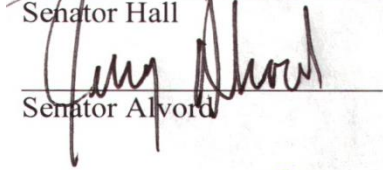 Senator Hall
Jerry Alvord
Senator Alvord